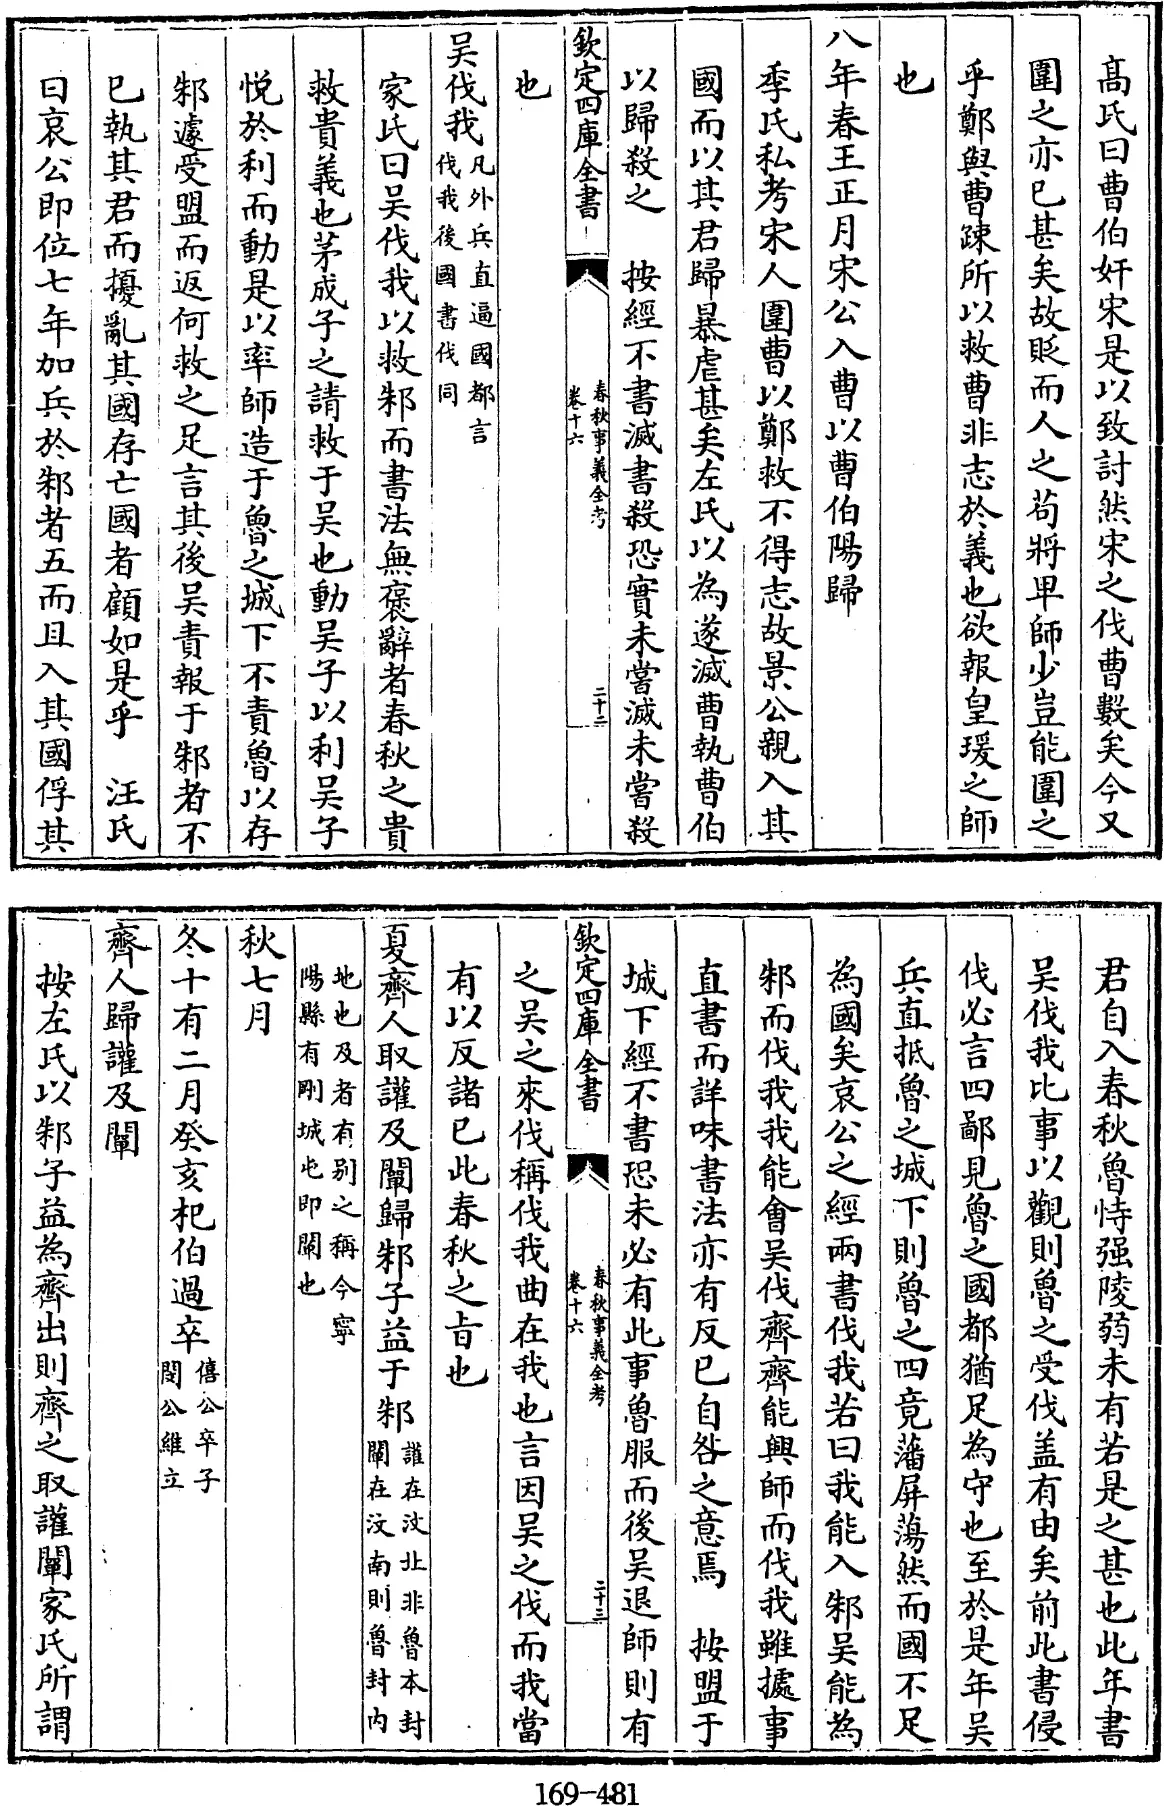 高氏曰曹伯奸宋是以致討然宋之伐曹數矣今又
圍之亦已甚矣故貶而人之苟將卑師少豈能圍之
乎鄭與曹踈所以救曹非志於義也欲報皇瑗之師
也
八年春王正月宋公入曹以曹伯陽歸
季氏私考宋人圍曹以鄭救不得志故景公親入其
國而以其君歸暴虐甚矣左氏以為遂滅曹執曹伯
以歸殺之　按經不書滅書殺恐實未嘗滅未嘗殺
欽定四庫全書
春秋事義全考
卷十六
二十二
也
吴伐我凡外兵直逼國都言
伐我後國書伐同
家氏曰吴伐我以救邾而書法無褒辭者春秋之貴
救貴義也茅成子之請救于吴也動吴子以利吴子
悦於利而動是以率師造于魯之城下不責魯以存
邾遽受盟而返何救之足言其後吴責報于邾者不
已執其君而擾亂其國存亡國者顧如是乎　汪氏
曰哀公即位七年加兵於邾者五而且入其國俘其
君自入春秋魯恃强陵弱未有若是之甚也此年書
吴伐我比事以觀則魯之受伐盖有由矣前此書侵
伐必言四鄙見魯之國都猶足為守也至於是年吴
兵直抵魯之城下則魯之四竟藩屏蕩然而國不足
為國矣哀公之經兩書伐我若曰我能入邾吴能為
邾而伐我我能會吴伐齊齊能興師而伐我雖據事
直書而詳味書法亦有反已自咎之意焉　按盟于
城下經不書恐未必有此事魯服而後吴退師則有
欽定四庫全書
春秋事義全考
卷十六
二十三
之吴之來伐稱伐我曲在我也言因吴之伐而我當
有以反諸已此春秋之旨也
夏齊人取讙及闡歸邾子益于邾讙在汶北非魯本封
闡在汶南則魯封内
地也及者有别之稱今寧
陽縣有剛城屯即闡也
秋七月
冬十有二月癸亥杞伯過卒僖公卒子
閔公維立
齊人歸讙及闡
按左氏以邾子益為齊出則齊之取讙闡家氏所謂
169-481